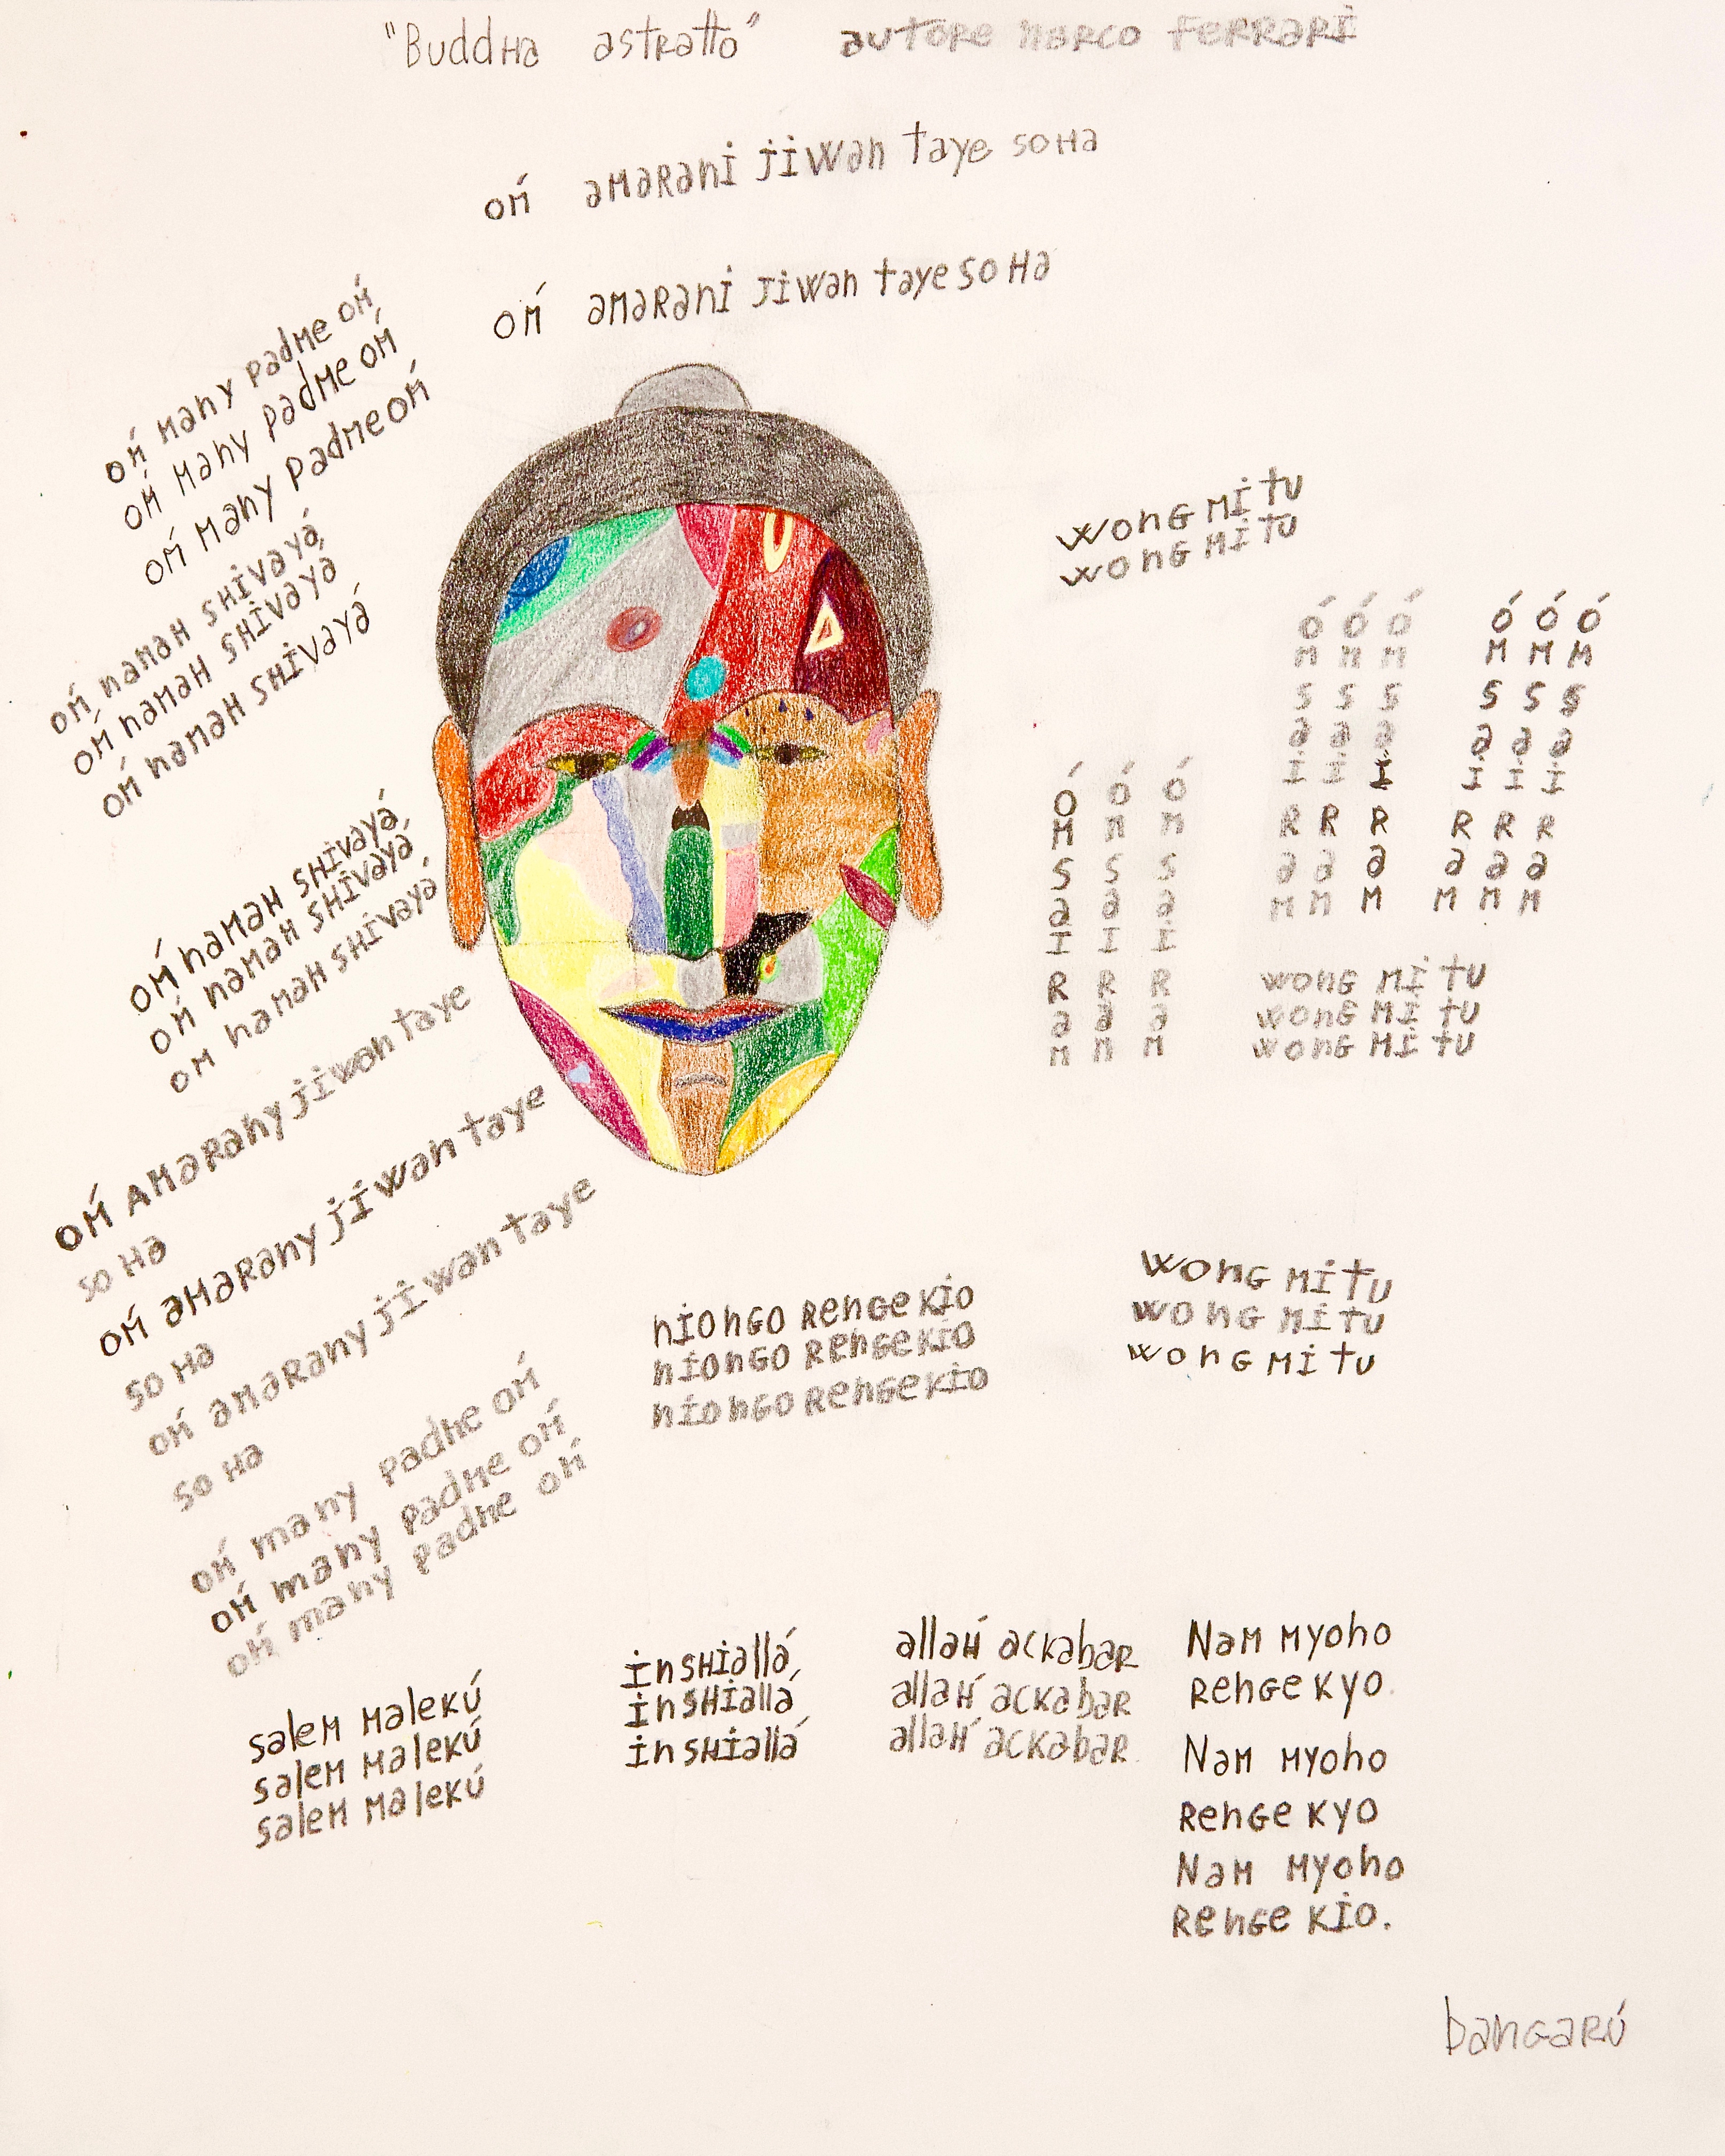 "BuddHa astratto" autore marco ferrari
oḿ amarani jiwan taye soHa
oḿ amarani jiwan taye so Ha
oḿ many padme oḿ
oḿ many padme oḿ
oḿ many padme oḿ
oḿ namaH sHivayá
oḿ namaH sHivayá
oḿ namaH sHivayá
wong mi tu
wong mi tu
óm sai ram
óm sai ram
óm sai ram
óm sai ram
óm sai ram
óm sai ram
óm sai ram
óm sai ram
óm sai ram
wong mi tu
wong mi tu
wong mi tu
oḿ namaH sHivayá
oḿ namaH sHivayá
om namaH sHivayá
oḿ Amarany jiwan taye
so Ha
oḿ amarany jiwan taye
so Ha
oḿ amarany jiwan taye
so Ha
niongo rengekio
niongo rengekio
niongo rengekio
wong mi tu
wong mi tu
wong mi tu
oḿ many padme oḿ
oḿ many padme oḿ
oḿ many padme oḿ
salem malekú
salem malekú
salem malekú
insHiallá
insHiallá
insHiallá
allaH́ ackabar
allaH́ ackabar
allaH́ ackabar
Nam myoho
renge kyo
Nam myoho
renge kyo
Nam myoho
renge kio.
bangarú